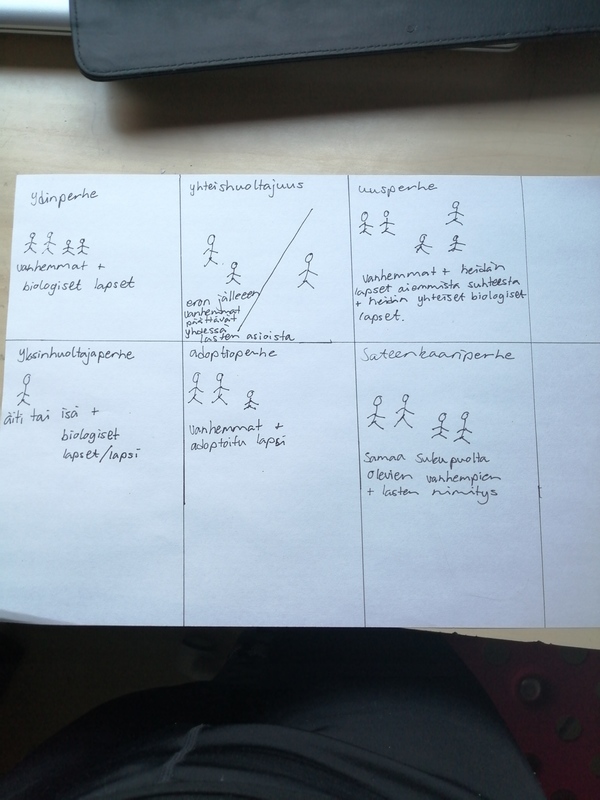 ydinperhe
vanhemmat +
biologiset lapset
yhteishuoltajuus
eron jälleen
vanhemmat
päättävät
yhdessä
lasten asioista
uusperhe
vanhemmat + heidän
lapset aiommista suhteesta
+ heidän yhteiset biologiset
lapset.
yksinhuoltajaperhe
äiti tai isä +
biologiset
lapset/lapsi
adoptioperhe
vanhemmat +
adoptoitu lapsi
Sateenkaariperhe
Samaa sukupuolta
olevien vanhempien
+ lasten nimitys